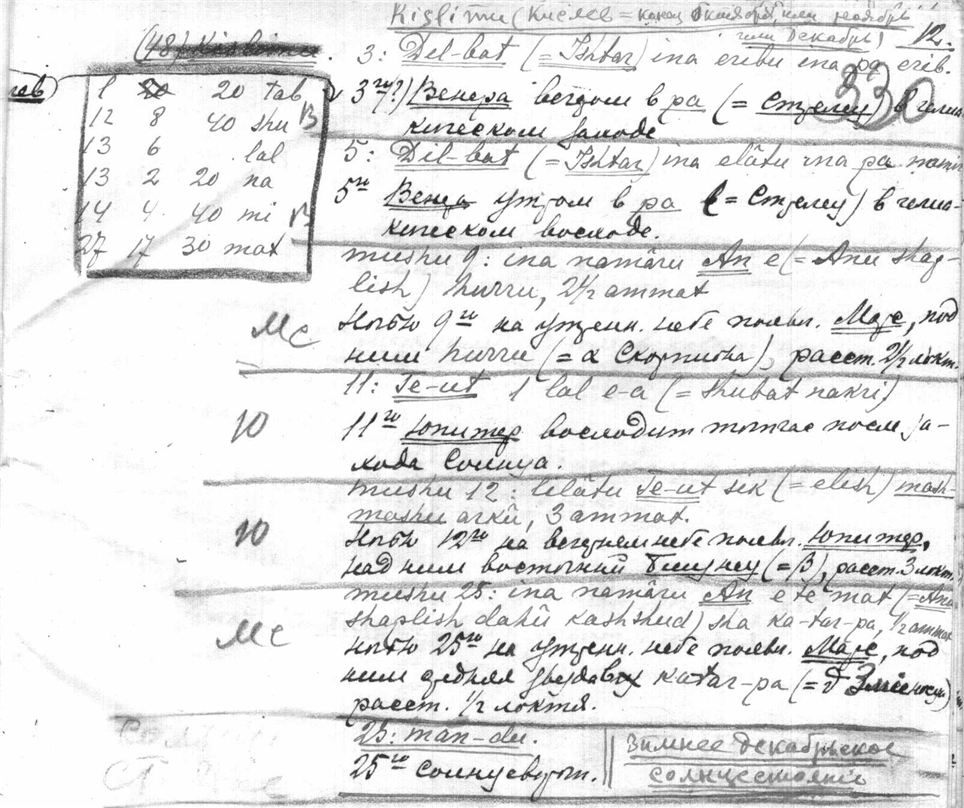 Kislimu (Кислев = конец Октября, или ноябрь
или Декабрь) 12.
(48) Kislimu
3: Dil-bat (= Ishtar) ina eribi ina pa erib.
330
1 20 20 tab
12 8 40 shu В
13 6 lal
13 2 20 na
14 4 40 mi В
27 17 30 mat
3го(?) Венера вечером в pa (= Стрелец) в гелиа-
кическом заходе
5: Dil-bat (= Ishtar) ina elâtu ina pa namir
5го Венера утром в pa (= Стрелец) в гелиа-
кическом восходе.
mushu 9: ina namâru An e (= Anu shap-
lish) hurru, 2½ ammat
Мс
Ночью 9го на утренн. небе появл. Марс, под
ним hurru (= α Скорпиона), расст. 2½ локт.
11: Te-ut 1 lal e-a (= shubat nakri)
Ю
11го Юпитер восходит тотчас после за-
хода Солнца.
mushu 12: lilâtu Te-ut sik (= elish) mash-
mashu arkû, 3 ammat.
Ю
Ночью 12го на вечернем небе появл. Юпитер,
над ним восточный Близнец (= β), расст. 3 локт.
mushu 25: ina namâru An e te mat (= Anu
shaplish dahû kashshud) sha ka-tar-pa, ½ ammat
Мс
Ночью 25го на утренн. небе появл. Марс, под
ним средняя звезда katar-pa (= Змееносца)
расст. ½ локтя.
25: man-du.
25го солнцеворот.
Зимнее декабрьское
солнцестояние